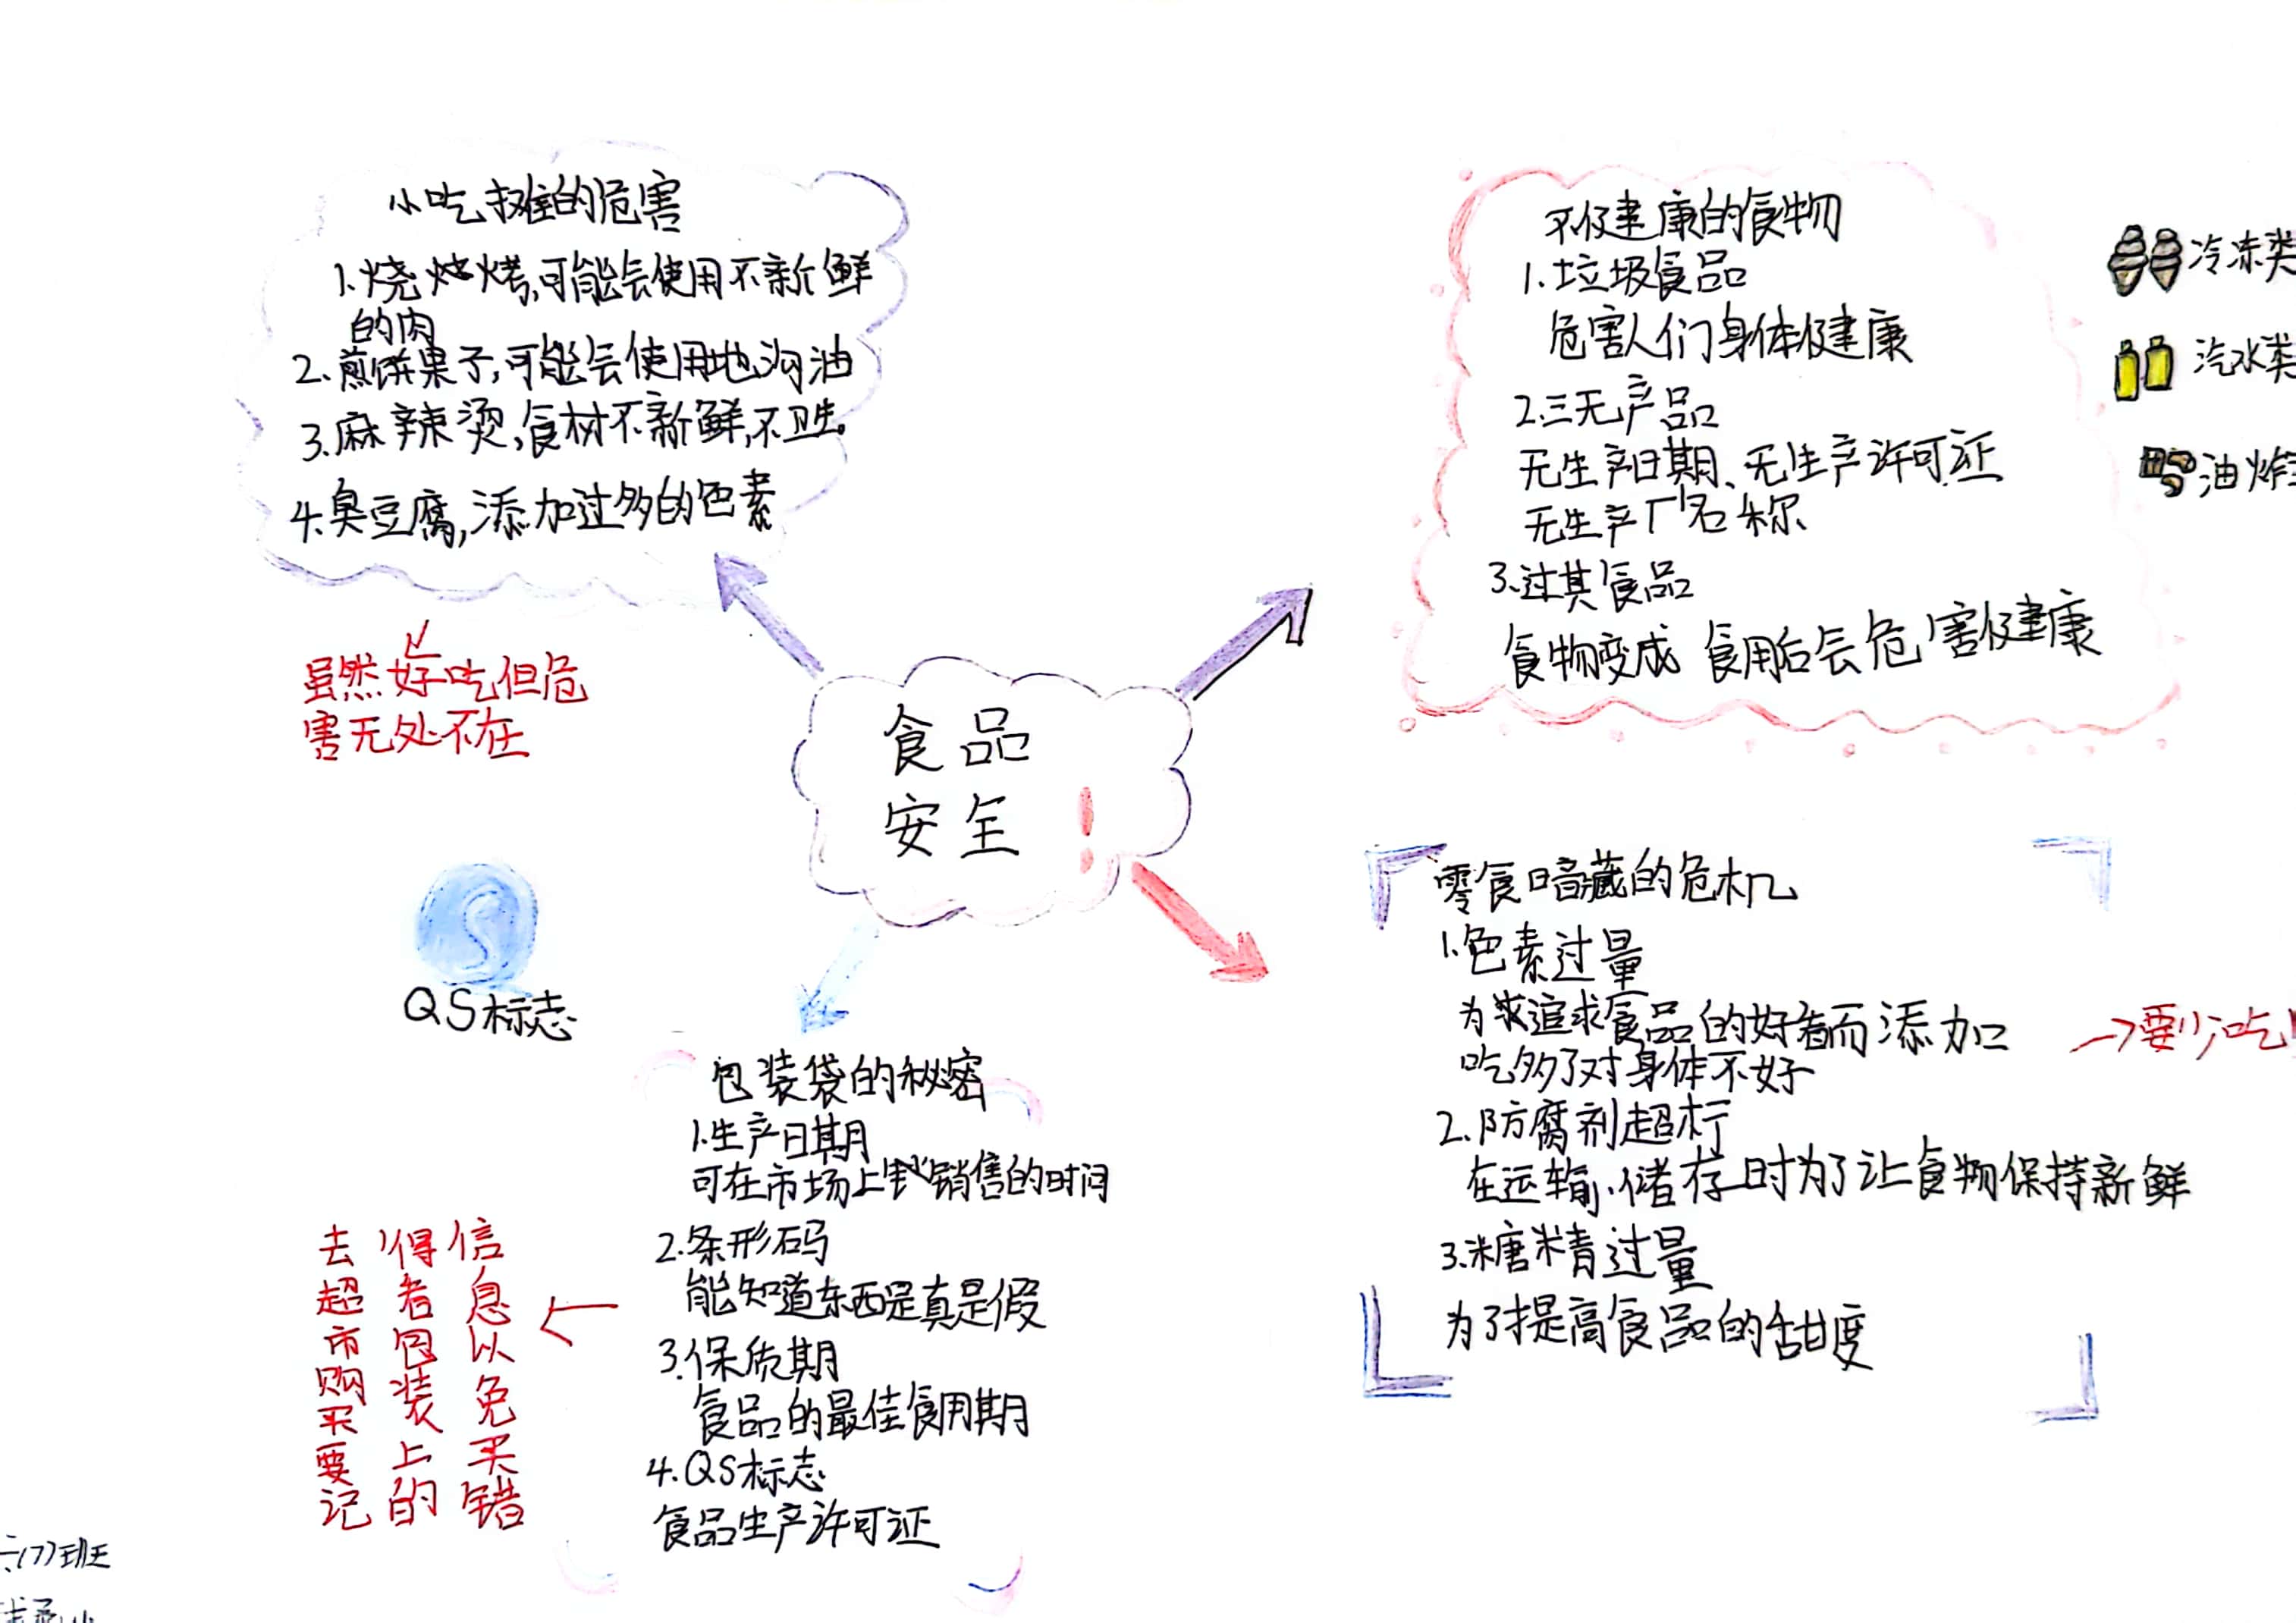 小吃摊的危害
1.烧烤,可能会使用不新鲜
的肉
2.煎饼果子,可能会使用地沟油
3.麻辣烫,食材不新鲜,不卫生。
4.臭豆腐,添加过多的色素
虽然好吃但危
害无处不在
不健康的食物
1.垃圾食品
危害人们身体健康
2.三无产品
无生产日期、无生产许可证
无生产厂名称
3.过其食品
食物变成 食用后会危害健康
冷冻类
汽水类
油炸
食品
安全!
QS标志
包装袋的秘密
1.生产日期
可在市场上销售的时间
2.条形码
能知道东西是真是假
3.保质期
食品的最佳食用期
4.QS标志
食品生产许可证
去超市购买要记
得看包装上的
信息以免买错
零食暗藏的危机
1.色素过量
为追求食品的好看而添加
吃多了对身体不好
2.防腐剂超标
在运输、储存时为了让食物保持新鲜
3.糖精过量
为了提高食品的甜度
→要少吃
六(7)班